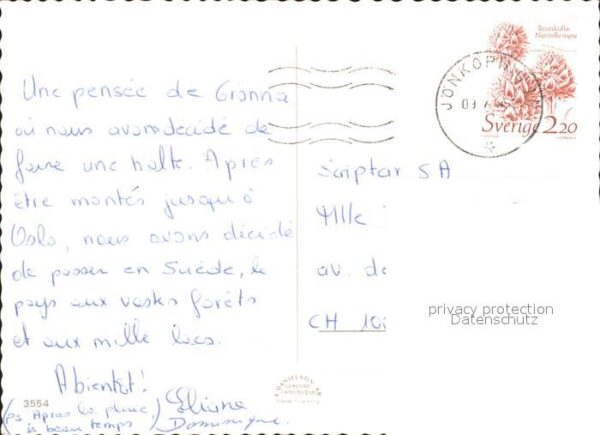 Une pensée de Gränna
où nous avons décidé de
faire une halte. Après
être montés jusqu'à
Oslo, nous avons décidé
de passer en Suède, le
pays aux vastes forêts
et aux mille lacs.
A bientôt!
Eliane
Dominique.
(ps Après la pluie,
le beau temps)
3554
Brunkulla
Nigritella nigra
JÖNKÖPING
Sverige 2.20
Scriptar SA
Mlle
av. de
CH 10
privacy protection
Datenschutz